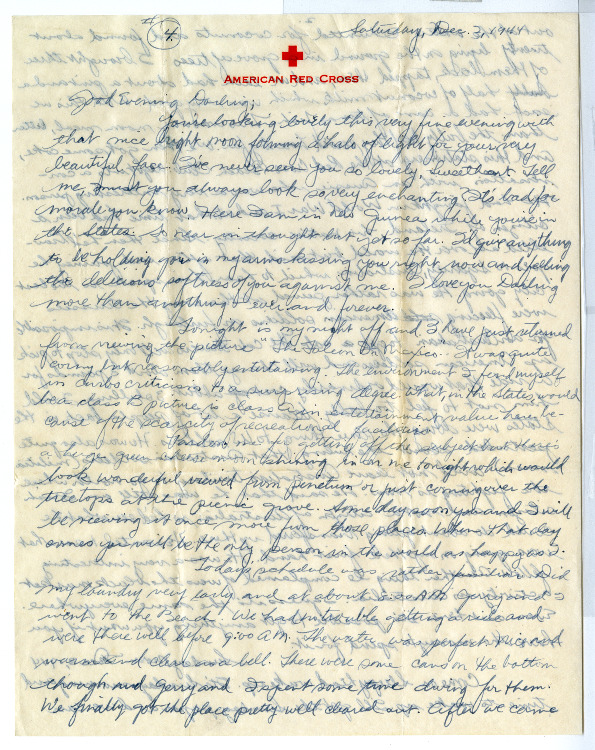 #4.
Saturday, Dec. 3, 1944
AMERICAN RED CROSS
Good Evening Darling;
You're looking lovely this very fine evening with
that nice bright moon forming a halo of light for your very
beautiful face. I've never seen you so lovely, Sweetheart. Tell
me, must you always look so very enchanting? It's bad for
morale you know. Here I am in New Guinea while you're in
the States. So near in thought but yet so far. I'd give anything
to be holding you in my arms kissing you right now and feeling
the delicious softness of you against me. I love you Darling
more than anything & ever and forever.
Tonight is my night off and I have just returned
from viewing the picture "The Falcon In Mexico." It was quite
corny but reasonably entertaining. The environment I find myself
in curbs criticism to a surprising degree. What, in the States, would
be a class B picture is class A in entertainment value here be-
cause of the scarcity of recreational facilities.
Pardon me for getting off the subject but there's
a large green cheese moon shining in on me tonight which would
look wonderful viewed from pinetum or just coming over the
treetops at the picnic grove. Some day soon you and I will
be viewing it once more from those places. When that day
comes you will be the only person in the world as happy as I.
Today's schedule was rather Did
my laundry very early and at about 8:00 A.M. Gerry and I
went to the Beach. We had no trouble getting a ride and
were there well before 9:00 A.M. The water was perfect. Nice and
warm and clear as a bell. There were some cans on the bottom
though and Gerry and I spent some time diving for them.
We finally got the place pretty well cleared out. After we came